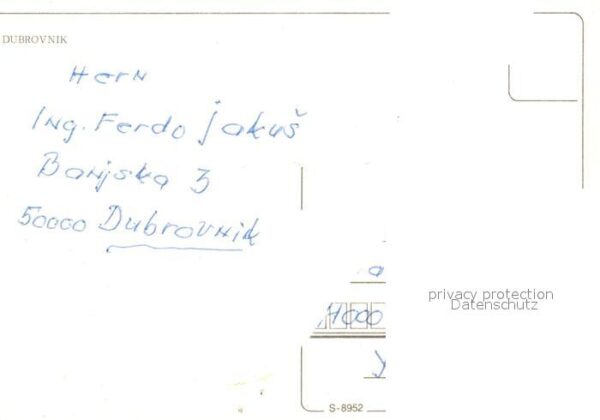 DUBROVNIK
Hern
Ing. Ferdo Jakuš
Banjska 3
50000 Dubrovnik
a
privacy protection
Datenschutz
41000
S-8952